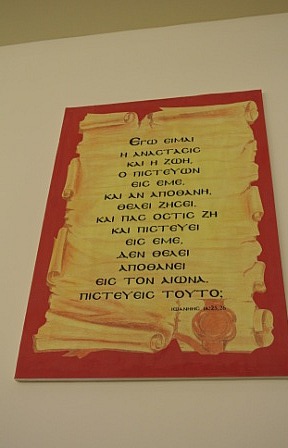 Εγω ειμαι
η αναστασις
και η ζωη,
ο πιστευων
εις εμε,
και αν αποθανη,
θελει ζησει.
και πας οστις ζη
και πιστευει
εις εμε,
δεν θελει
αποθανει
εις τον αιωνα.
πιστευεις τουτο;